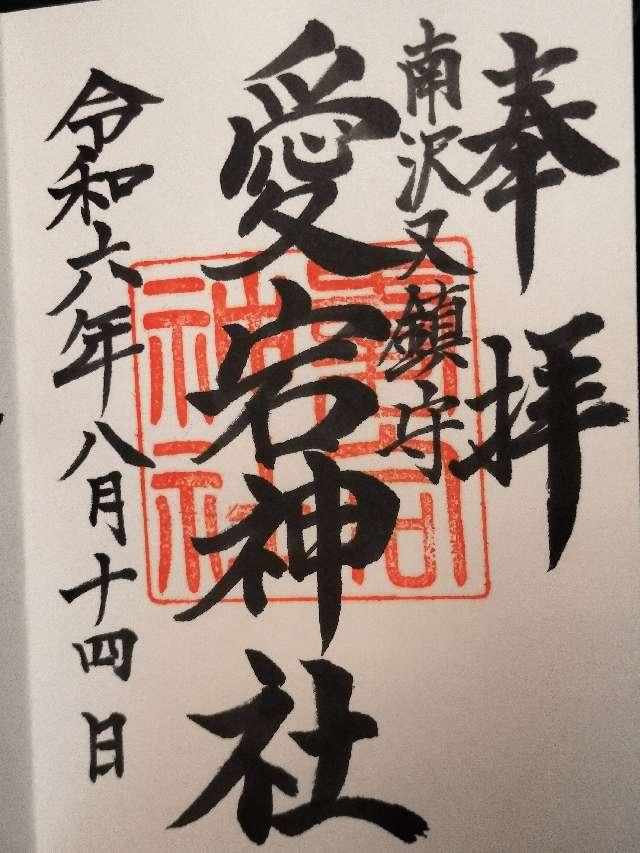 奉拝
南沢又鎮守
愛宕神社
令和六年八月十四日